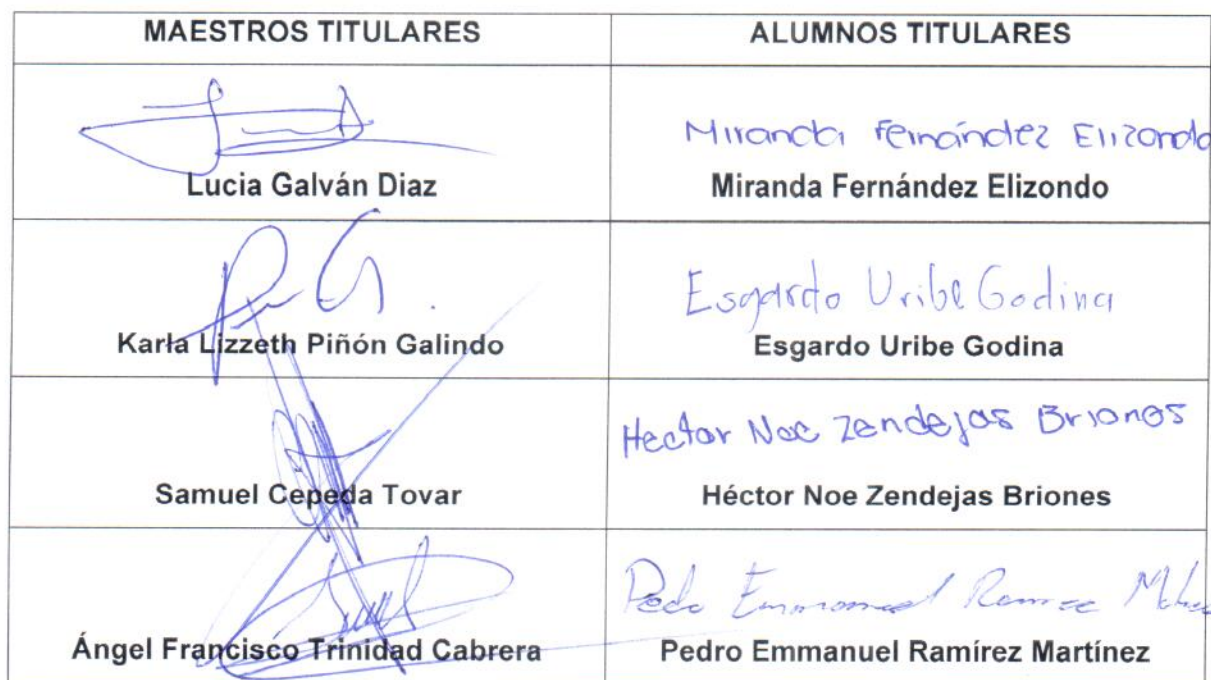 MAESTROS TITULARES
ALUMNOS TITULARES
Lucia Galván Diaz
Miranda Fernández Elizondo
Miranda Fernández Elizondo
P G.
Karla Lizzeth Piñón Galindo
Esgardo Uribe Godina
Esgardo Uribe Godina
Samuel Cepeda Tovar
Hector Noe Zendejas Briones
Héctor Noe Zendejas Briones
Ángel Francisco Trinidad Cabrera
Pedro Emmanuel Ramirez
Pedro Emmanuel Ramírez Martínez